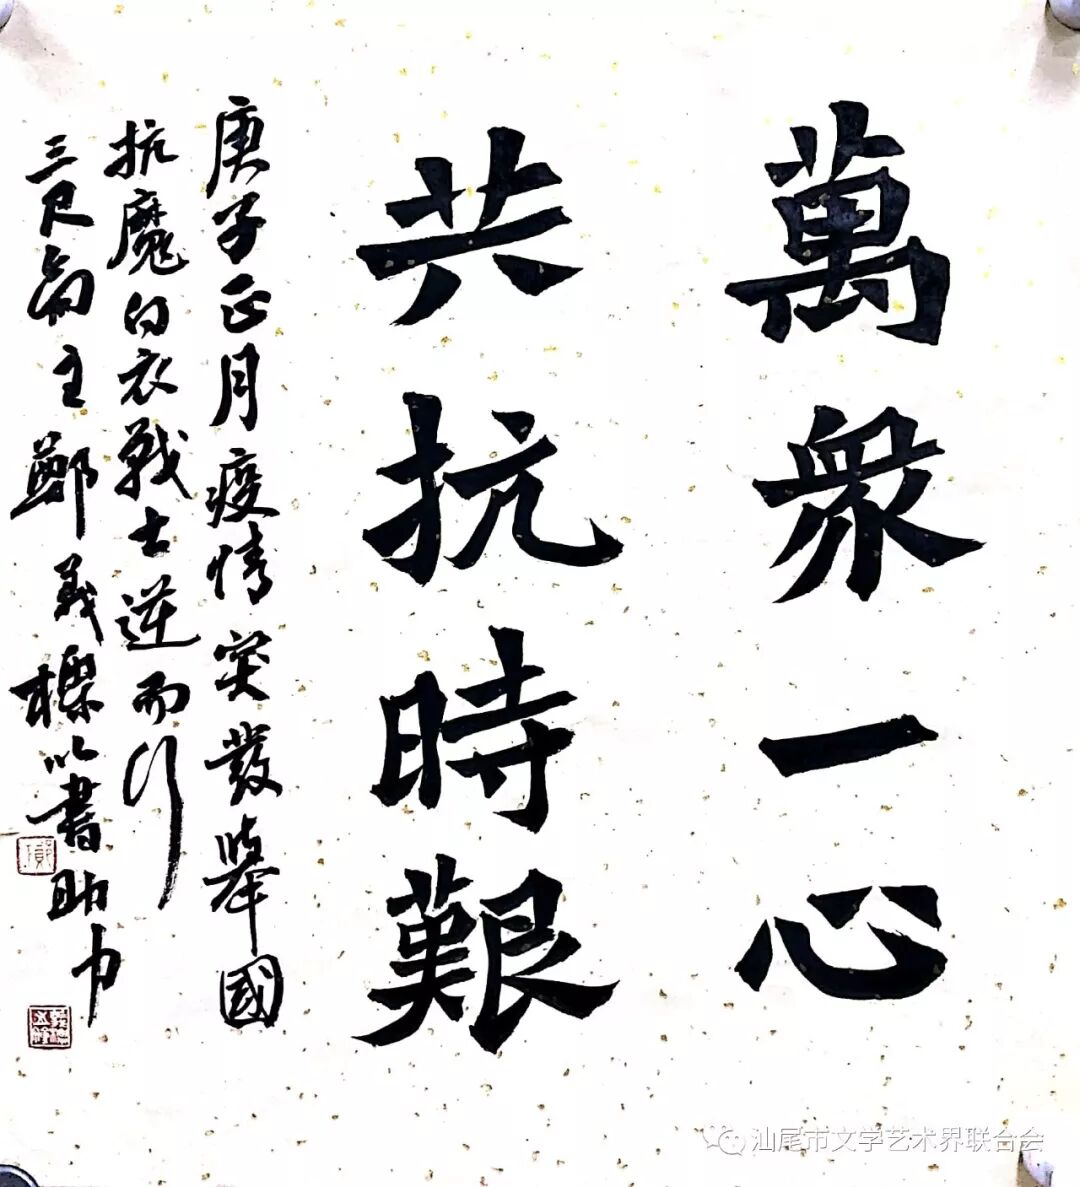 萬眾一心
共抗時艱
庚子正月疫情突發舉國
抗魔白衣戰士逆而行
三尺齋主鄭義櫟以書助力
汕尾市文学艺术界联合会